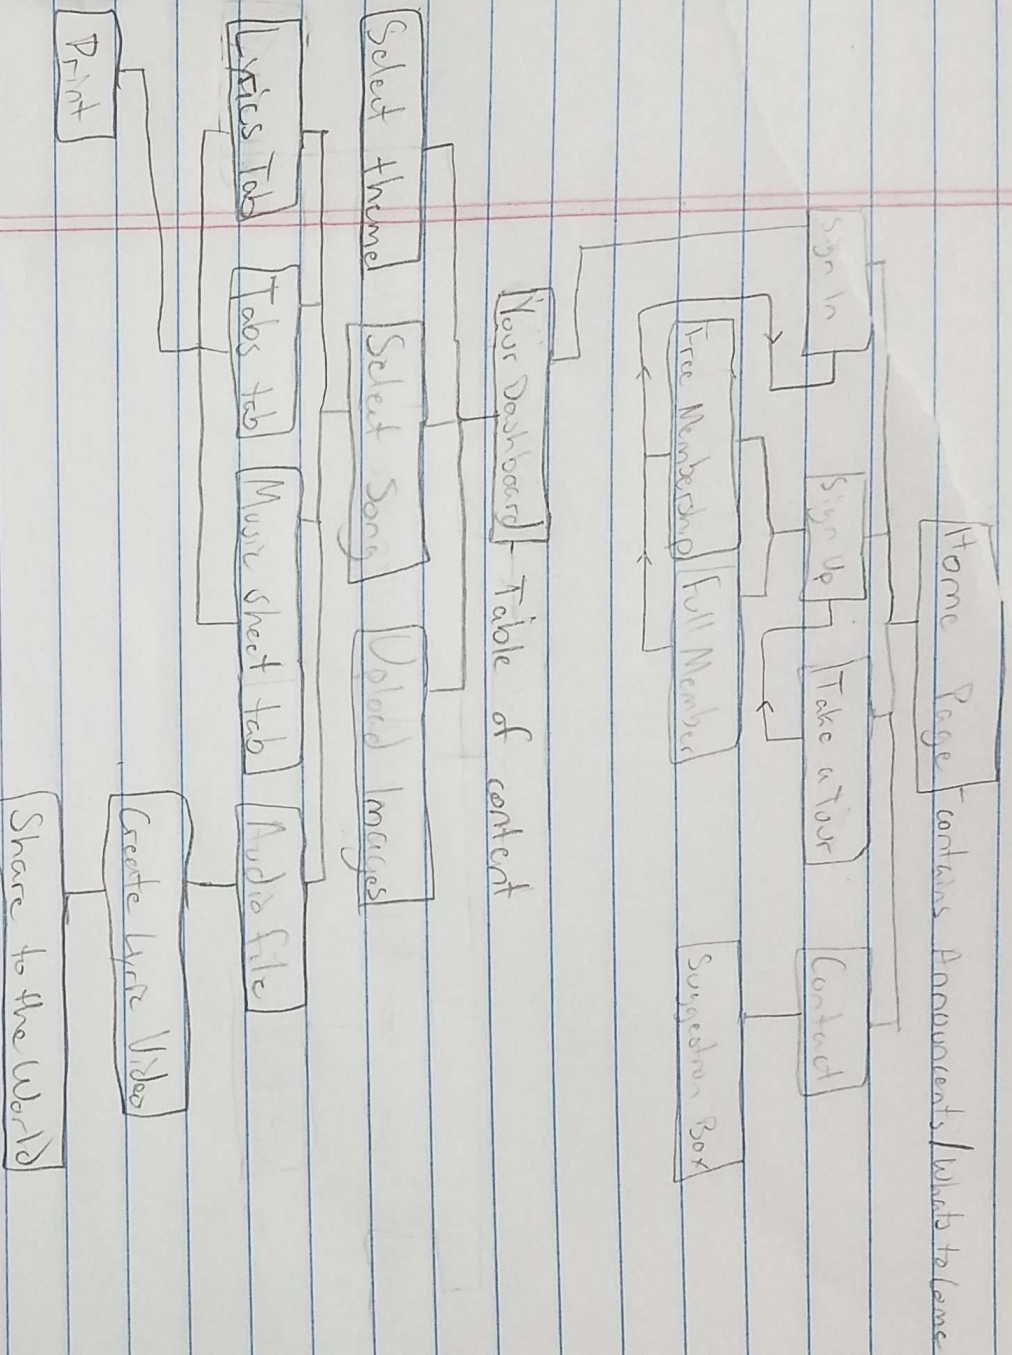 Home Page - contains Announcents/Whats to Come
Sign In
Sign Up
Take a Tour
Contact
Free Membership
Full Member
Suggestion Box
Your Dashboard - Table of content
Select theme
Select Song
Upload Images
Lyrics Tab
Tabs tab
Music sheet tab
Audio file
Print
Create Lyric Video
Share to the World